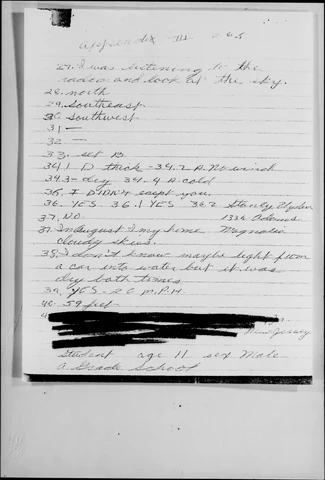 appendix III 265
27. I was listening to the
radio and look at the sky.
28. north
29. Southeast
30 Southwest
31 —
32 —
33. set B
34.1 D thick - 34.2 A. No wind
34.3 - dry 34.4 A cold
35. I DIDN'T exept you
36. YES. 36.1 YES 36.2 Stanley
37. NO. 1336 Adams
37. In August I my home Magnolia
cloudy skies.
38. I don't know maybe light from
a car into water but it was
dry both times
39. YES - 20 M.P.H.
40. 59 feet
4
New Jersey
Student age 11 sex Male
a Grade School